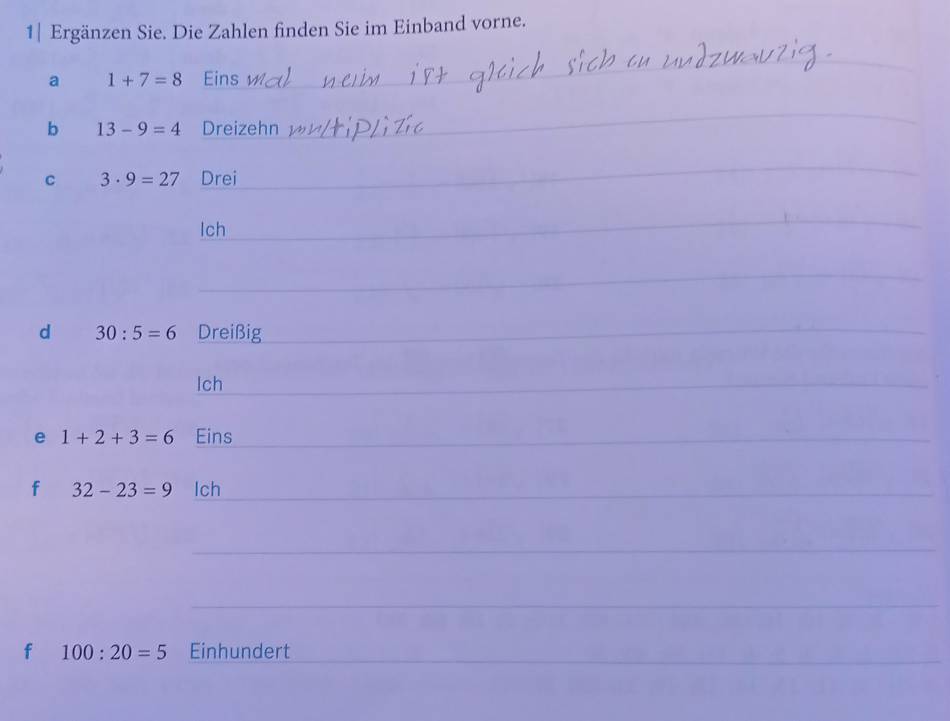 1| Ergänzen Sie. Die Zahlen finden Sie im Einband vorne.
a 1 + 7 = 8 Eins mal nein ist gleich sich en undzwanzig.
b 13 – 9 = 4 Dreizehn multiplizic
c 3 · 9 = 27 Drei
Ich
d 30 : 5 = 6 Dreißig
Ich
e 1 + 2 + 3 = 6 Eins
f 32 – 23 = 9 Ich
f 100 : 20 = 5 Einhundert